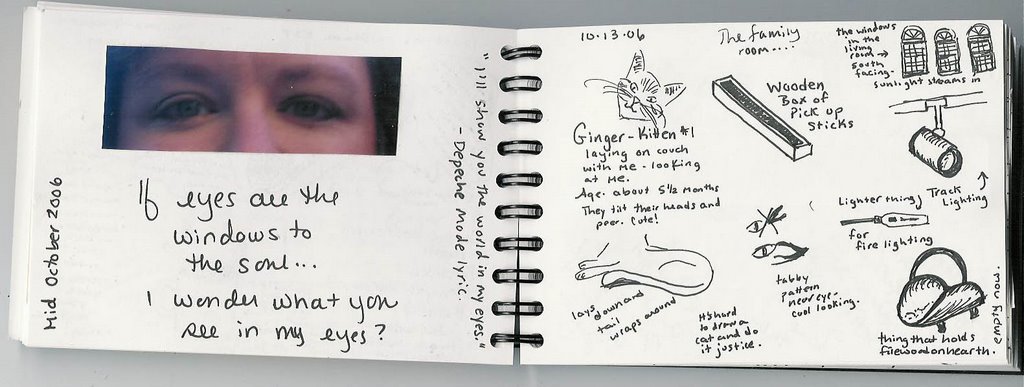 Mid October 2006
If eyes are the
windows to
the soul...
I wonder what you
see in my eyes?
"I'll show you the world in my eyes."
- Depeche Mode lyric.
10.13.06
Ginger - Kitten #1
laying on couch
with me - looking
at me.
Age. about 5 1/2 months
They tilt their heads and
peer. Cute!
lays down and
tail
wraps around
It's hard
to draw a
cat and do
it justice.
The family
room....
Wooden
Box of
Pick up
Sticks
the windows
in the
living
room →
south
facing.
sunlight streams in
Track
Lighting
Lighter thing
for
fire lighting
tabby
pattern
near eye.
cool looking.
thing that holds
firewood on hearth.
empty now.